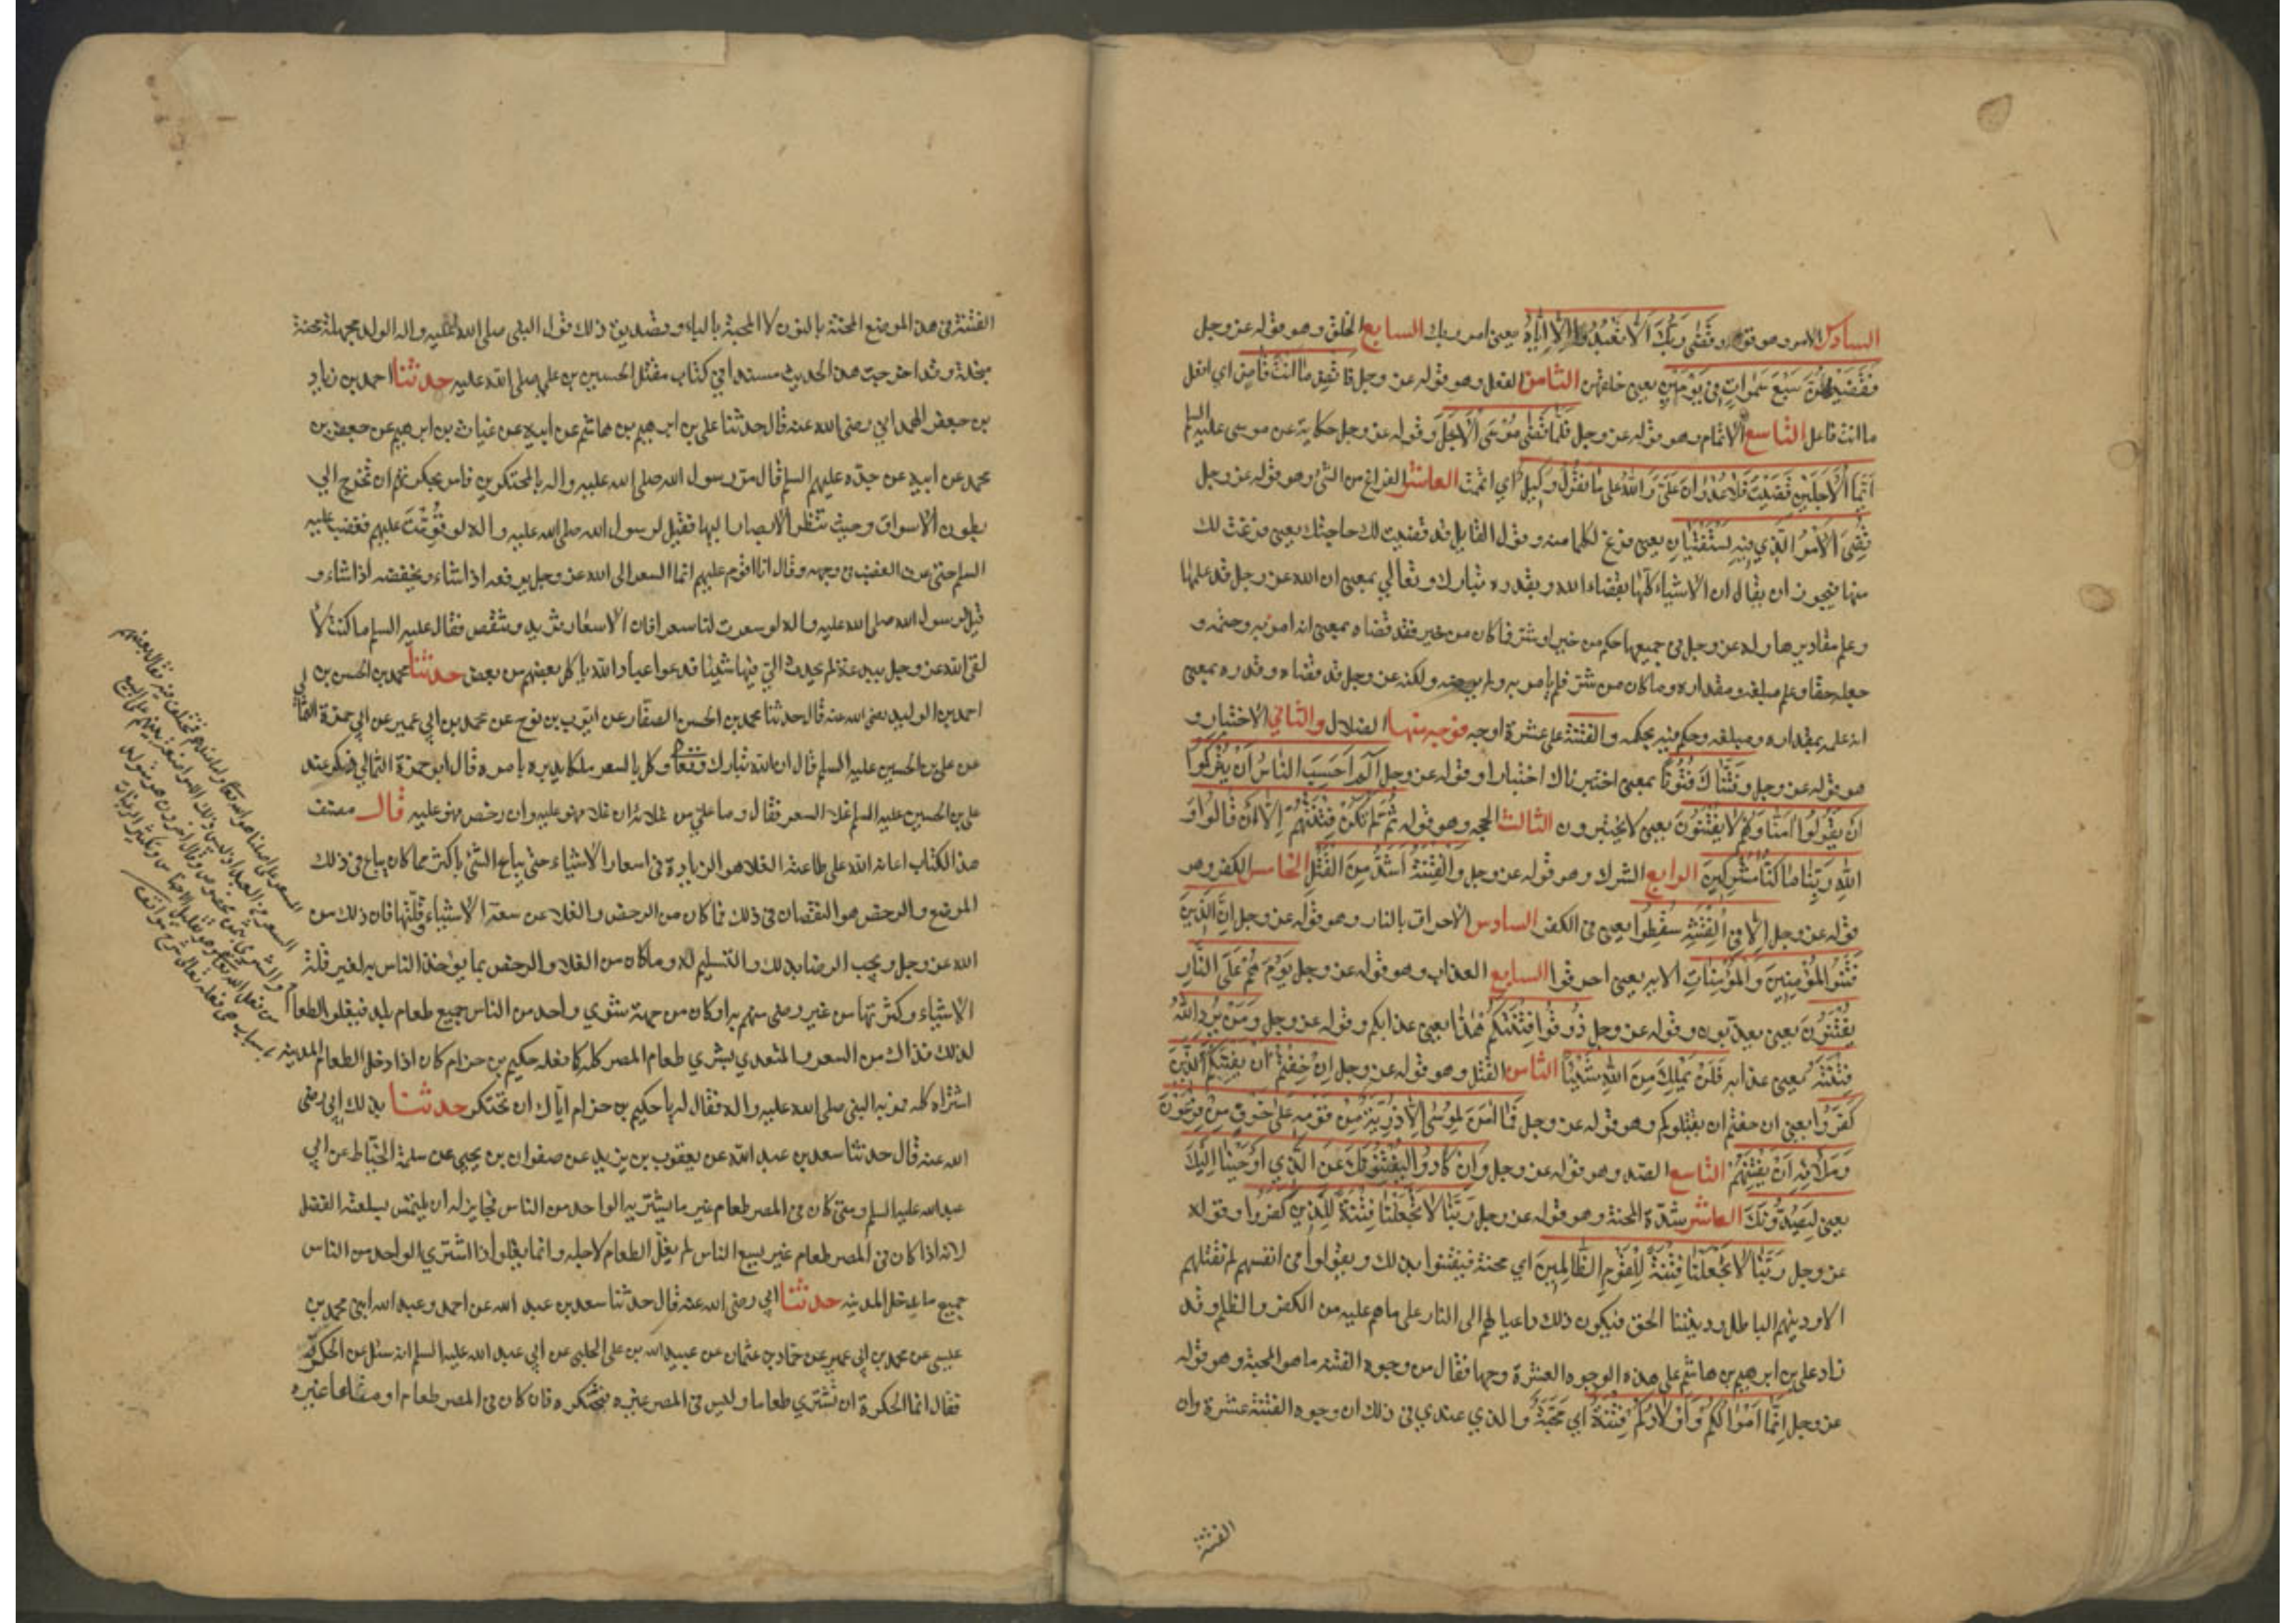 السادس الامر وهو قوله وقَضٰى رَبُّكَ اَلّا تَعْبُدُوا اِلّا اِيّاهُ يعني امر ربك السابع الخلق وهو قوله عز وجل
فَقَضٰيهُنَّ سَبْعَ سَمٰواتٍ فِي يَوْمَيْنِ يعني خلقهن الثامن الفعل وهو قوله عز وجل فاقْضِ ما اَنْتَ قاضٍ اي افعل
ما انت فاعل التاسع الاتمام وهو قوله عز وجل فَلَمّا قَضٰى مُوسَى الْاَجَلَ وقوله عز وجل حكاية عن موسى عليه السلم
اَيَّمَا الْاَجَلَيْنِ قَضَيْتُ فَلا عُدْوانَ عَلَيَّ وَاللهُ عَلى ما نَقُولُ وَكِيلٌ اي اتممت العاشر الفراغ من الشئ وهو قوله عز وجل
قُضِيَ الْاَمْرُ الَّذِي فِيهِ تَسْتَفْتِيانِ يعني فرغ لكما منه وقول القايل قد قضيت لك حاجتك يعني فرغت لك
منها فيجوز ان يقال ان الاشياء كلها بقضاء الله وبقدره تبارك وتعالي بمعني ان الله عز وجل قد علمها
وعلم مقاديرها وله عز وجل في جميعها حكم من خير او شر فما كان من خير فقد قضاه بمعني انه امر به وحتمه و
جعله حقا وعلم مبلغه ومقداره وما كان من شر فلم يامر به ولم يرضه ولكنه عز وجل قد قضاه وقدره بمعني
انه علمه بمقداره ومبلغه وحكم فيه بحكمه والفتنة على عشرة اوجه فوجه منها الضلال والثاني الاختبار و
هو قوله عز وجل وفَتَنّاكَ فُتُونًا بمعني اختبرناك اختبارا وقوله عز وجل الٓمٓ اَحَسِبَ النّاسُ اَنْ يُتْرَكُوا
اَنْ يَقُولُوا آمَنّا وَهُمْ لا يُفْتَنُونَ يعني لا يختبرون الثالث الحجه وهو قوله ثُمَّ لَمْ تَكُنْ فِتْنَتُهُمْ اِلّا اَنْ قالُوا وَ
اللهِ رَبِّنا ما كُنّا مُشْرِكِينَ الرابع الشرك وهو قوله عز وجل والْفِتْنَةُ اَشَدُّ مِنَ الْقَتْلِ الخامس الكفر وهو
قوله عز وجل اَلا فِي الْفِتْنَةِ سَقَطُوا يعني في الكفر السادس الاحراق بالنار وهو قوله عز وجل اِنَّ الَّذِينَ
فَتَنُوا الْمُؤْمِنِينَ وَالْمُؤْمِناتِ الايه يعني احرقوا السابع العذاب وهو قوله عز وجل يَوْمَ هُمْ عَلَى النّارِ
يُفْتَنُونَ يعني يعذبون وقوله عز وجل ذُوقُوا فِتْنَتَكُمْ هٰذا يعني عذابكم وقوله عز وجل وَمَنْ يُرِدِ اللهُ
فِتْنَتَهُ بمعني عذابه فَلَنْ تَمْلِكَ مِنَ اللهِ شَيْئًا الثامن القتل وهو قوله عز وجل اِنْ خِفْتُمْ اَنْ يَفْتِنَكُمُ الَّذِينَ
كَفَرُوا يعني ان خفتم ان يقتلوكم وهو قوله عز وجل فَما آمَنَ لِمُوسٰى اِلّا ذُرِّيَّةٌ مِنْ قَوْمِهِ عَلى خَوْفٍ مِنْ فِرْعَوْنَ
وَمَلَائِهِ اَنْ يَفْتِنَهُمْ التاسع الصد وهو قوله عز وجل وَاِنْ كادُوا لَيَفْتِنُونَكَ عَنِ الَّذِي اَوْحَيْنا اِلَيْكَ
يعني لَيَصُدُّونَكَ العاشر شدة المحنة وهو قوله عز وجل رَبَّنا لا تَجْعَلْنا فِتْنَةً لِلَّذِينَ كَفَرُوا وقوله
عز وجل رَبَّنا لا تَجْعَلْنا فِتْنَةً لِلْقَوْمِ الظّالِمِينَ اي محنة فيفتنوا بذلك ويقولوا في انفسهم لم نقتلهم
الا ودينهم الباطل وديننا الحق فيكون ذلك داعيا لهم الى النار على ما هم عليه من الكفر والظلم وقد
زاد علي بن ابرهيم بن هاشم على هذه الوجوه العشرة وجها فقال من وجوه الفتنه ما هو المحبة وهو قوله
عز وجل اِنَّما اَمْوالُكُمْ وَاَوْلادُكُمْ فِتْنَةٌ اي مَحَبَّةٌ والذي عندي في ذلك ان وجوه الفتنة عشرة وان
الفتنة
الفتنة في هذا الموضع المحنة بالنون لا المحبة بالباء وتصديق ذلك قول النبي صلى الله عليه واله الولد مجهلة محنة
مبخلة وقد اخرجت هذا الحديث مسندا في كتاب مقتل الحسين بن علي صلى الله عليه حدثنا احمد بن زياد
بن جعفر الهمداني رضى الله عنه قال حدثنا علي بن ابرهيم بن هاشم عن ابيه عن غياث بن ابرهيم عن جعفر بن
محمد عن ابيه عن جده عليهم السلم قال مر رسول الله صلى الله عليه واله بالمحتكرين فامر بحكرتهم ان تخرج الي
بطون الاسواق وحيث تنظر الابصار اليها فقيل لرسول الله صلى الله عليه واله لو قَوَّمْتَ عليهم فغضب عليه
السلم حتى عرف الغضب في وجهه وقال انا اقوم عليهم انما السعر الى الله عز وجل يرفعه اذا شاء ويخفضه اذا شاء و
قيل لرسول الله صلى الله عليه واله لو سعرت لنا سعرا فان الاسعار تزيد وتنقص فقال عليه السلم ما كنت لا
لقى الله عز وجل ببدعة لم يحدث الي فيها شيئا فدعوا عباد الله ياكل بعضهم من بعض حدثنا محمد بن الحسن بن
احمد بن الوليد رضى الله عنه قال حدثنا محمد بن الحسن الصفار عن ايوب بن نوح عن محمد بن ابي عمير عن ابي حمزة الثمالي
عن علي بن الحسين عليه السلم قال ان الله تبارك وتعالى وكل بالسعر ملكا يدبره بامره قال ابو حمزة الثمالي ذكر عند
علي بن الحسين عليه السلم غلا السعر فقال وما علي من غلائه ان غلا فهو عليه وان رخص فهو عليه قال مصنف
هذا الكتاب اعانه الله على طاعته الغلا هو الزيادة في اسعار الاشياء حتى يباع الشئ باكثر مما كان يباع في ذلك
الموضع والرخص هو النقصان في ذلك فما كان من الرخص والغلا عن سعة الاشياء وقلتها فان ذلك من
الله عز وجل ويجب الرضا بذلك والتسليم له وما كان من الغلا والرخص بما يؤخذ الناس به لغير قلة
الاشياء وكثرتها من غير رضى منهم به او كان من جهة شرى واحد من الناس جميع طعام بلد فيغلو الطعام
لذلك فذاك من السعر والمتعدي بشري طعام المصر كله كما فعله حكيم بن حزام كان اذا دخل الطعام المدينه
اشتراه كله فمر به النبي صلى الله عليه واله فقال له يا حكيم بن حزام اياك ان تحتكر حدثنا بذلك ابي رضى
الله عنه قال حدثنا سعد بن عبد الله عن يعقوب بن يزيد عن صفوان بن يحيي عن سلمة الحناط عن ابي
عبد الله عليه السلم ومتى كان في المصر طعام غير ما يشتريه الواحد من الناس فجايز له ان يلتمس بسلعته الفضل
لانه اذا كان في المصر طعام غير يسع الناس لم يغل الطعام لاجله وانما يغلو اذا اشتري الواحد من الناس
جميع ما يدخل المدينه حدثنا ابي رضى الله عنه قال حدثنا سعد بن عبد الله عن احمد وعبد الله ابني محمد بن
عيسى عن محمد بن ابي عمير عن حماد بن عثمان عن عبيد الله بن علي الحلبي عن ابي عبد الله عليه السلم انه سئل عن الحكرة
فقال انما الحكرة ان تشتري طعاما وليس في المصر غيره فتحتكره فان كان في المصر طعام او متاعا غيره